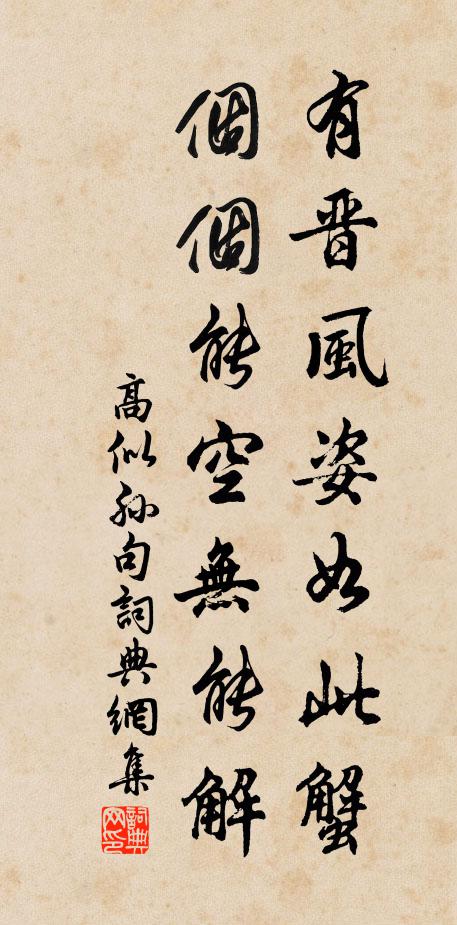 有晋風姿如此蟹
個個能空無能解
高似孫句詞典網集
詞典网印